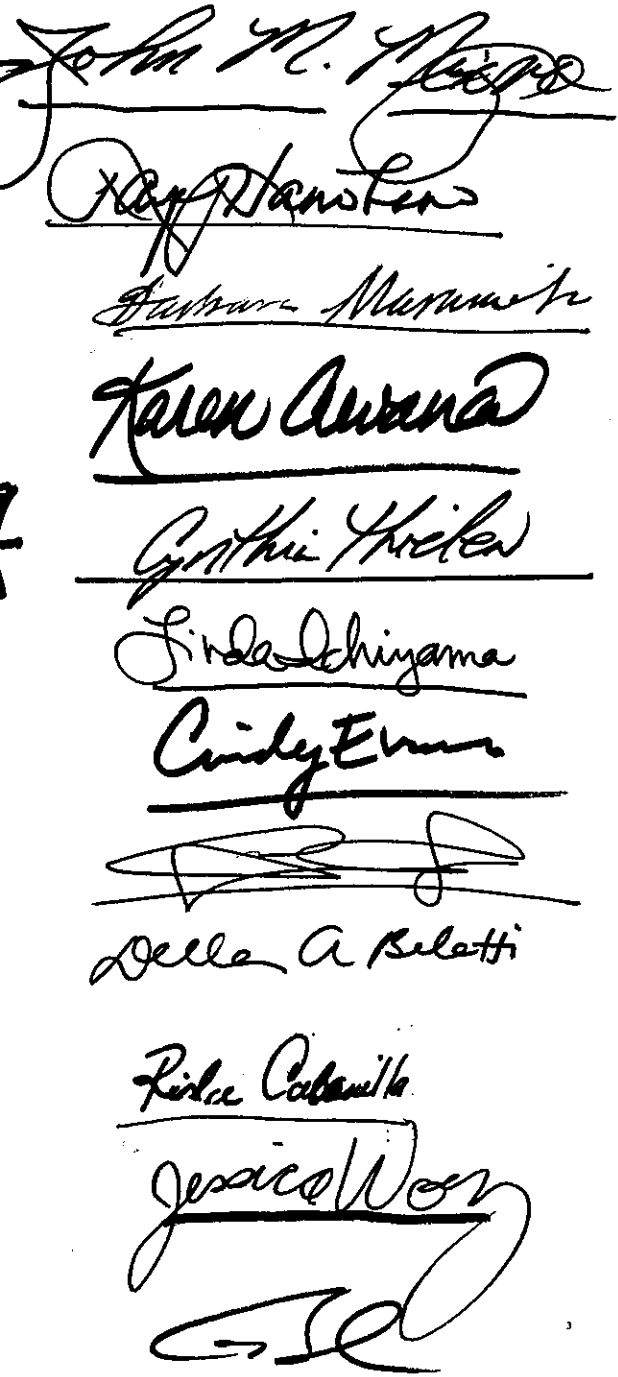 John M. Mizuno
Faye Hanohano
Barbara Marumoto
Karen Awana
Cynthia Thielen
Linda Ichiyama
Cindy Evans
Della A Belatti
Rida Cabanilla
Jessica Wooley
3